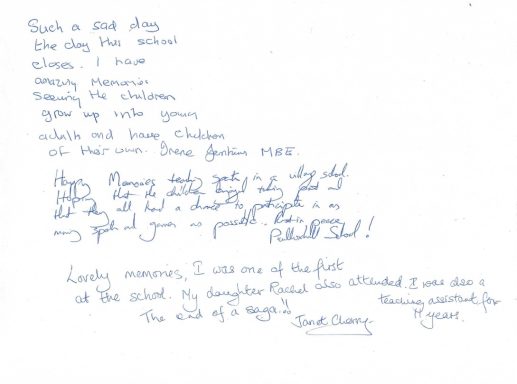 Such a sad day
the day this school
closes. I have
amazing memories
seeing the children
grow up into young
adults and have children
of their own. Irene MBE.
Happy Memories teaching sports in a village school.
Hoping that the children enjoyed taking part and
that they all had a chance to participate in as
many sports and games as possible. Rest in peace
School!
Lovely memories, I was one of the first
at the school. My daughter Rachel also attended. I was also a
teaching assistant for
years.
The end of a saga!!
Janet Cherry